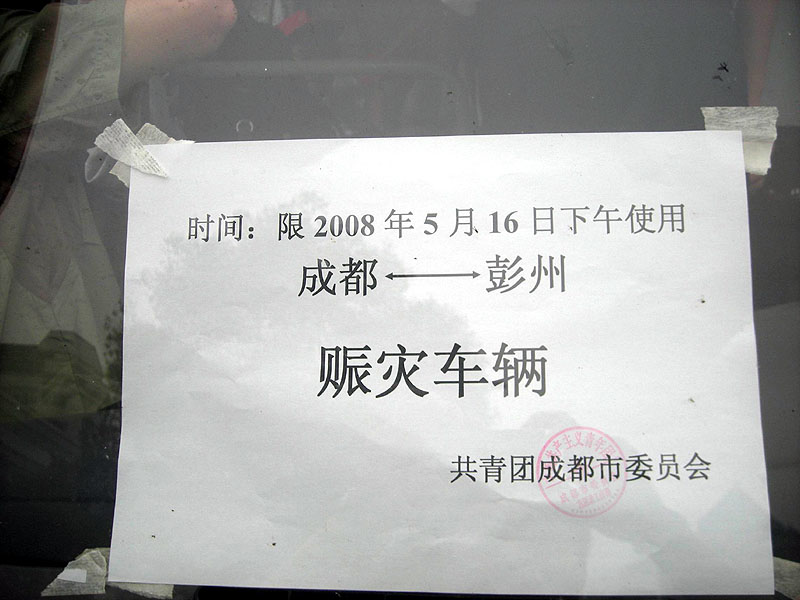 时间：限 2008 年 5 月 16 日下午使用
成都←→彭州
赈灾车辆
共青团成都市委员会